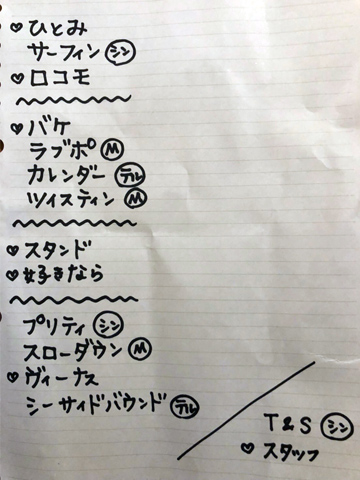 ♡ ひとみ
サーフィン シン
♡ ロコモ
♡ バケ
ラブポ M
カレンダー テル
ツイスティン M
♡ スタンド
♡ 好きなら
プリティ シン
スローダウン M
♡ ヴィーナス
シーサイドバウンド テル
T&S シン
♡ スタッフ